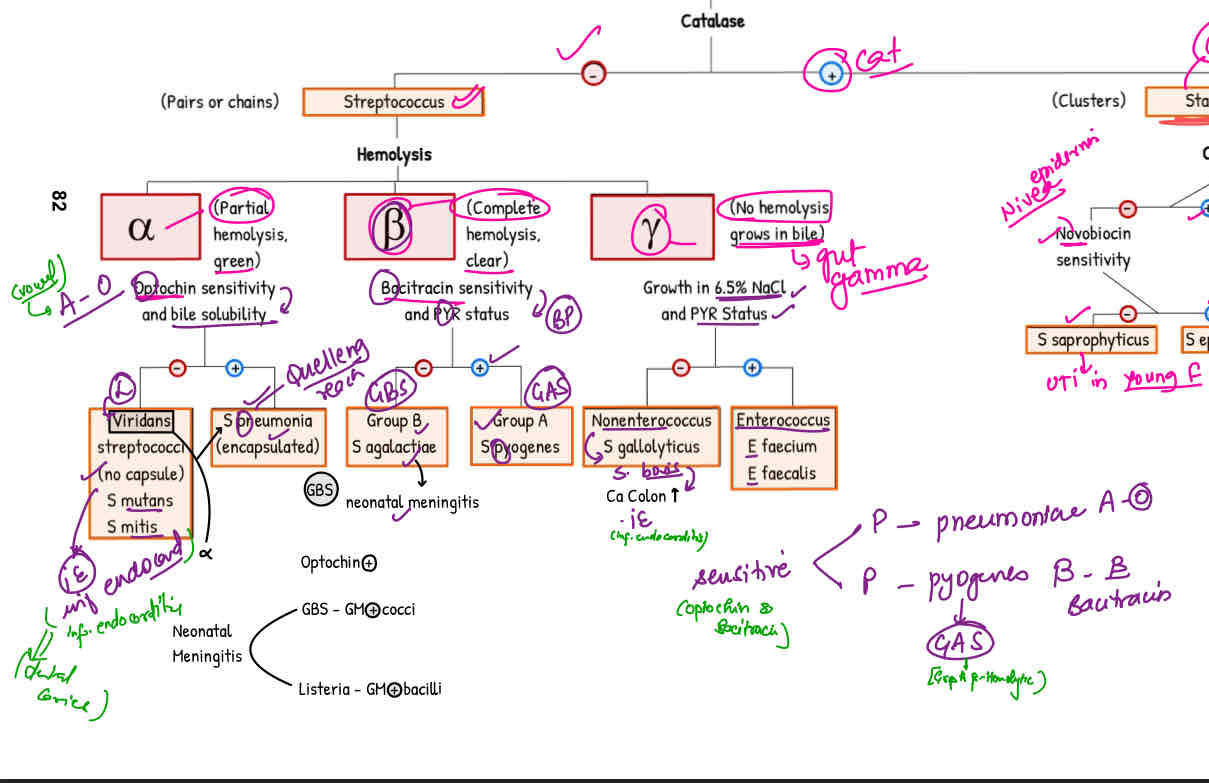 Catalase
cat
(Pairs or chains)
Streptococcus
(Clusters)
Sta
Hemolysis
82
α
(Partial
hemolysis,
green)
β
(Complete
hemolysis,
clear)
γ
(No hemolysis
grows in bile)
gut
gamma
(vowel)
A - O
Optochin sensitivity
and bile solubility
Bacitracin sensitivity
and PYR status
BP
Growth in 6.5% NaCl
and PYR Status
Novobiocin
sensitivity
S saprophyticus
S ep
UTI in young F
Quelleng
reacn
GBS
GAS
Viridans
streptococci
(no capsule)
S mutans
S mitis
S pneumonia
(encapsulated)
Group B
S agalactiae
Group A
S pyogenes
Nonenterococcus
S gallolyticus
S. bovis
Enterococcus
E faecium
E faecalis
GBS
neonatal meningitis
Ca Colon ↑
iE
(inf. endocarditis)
α
iE
inf endocard
Inf. endocarditis
(Dental
Optochin⊕
Neonatal
Meningitis
GBS - GM⊕cocci
Listeria - GM⊕bacilli
sensitive
(optochin &
Bacitracin)
P → pneumoniae A-O
P - pyogenes B - B
Bacitracin
GAS